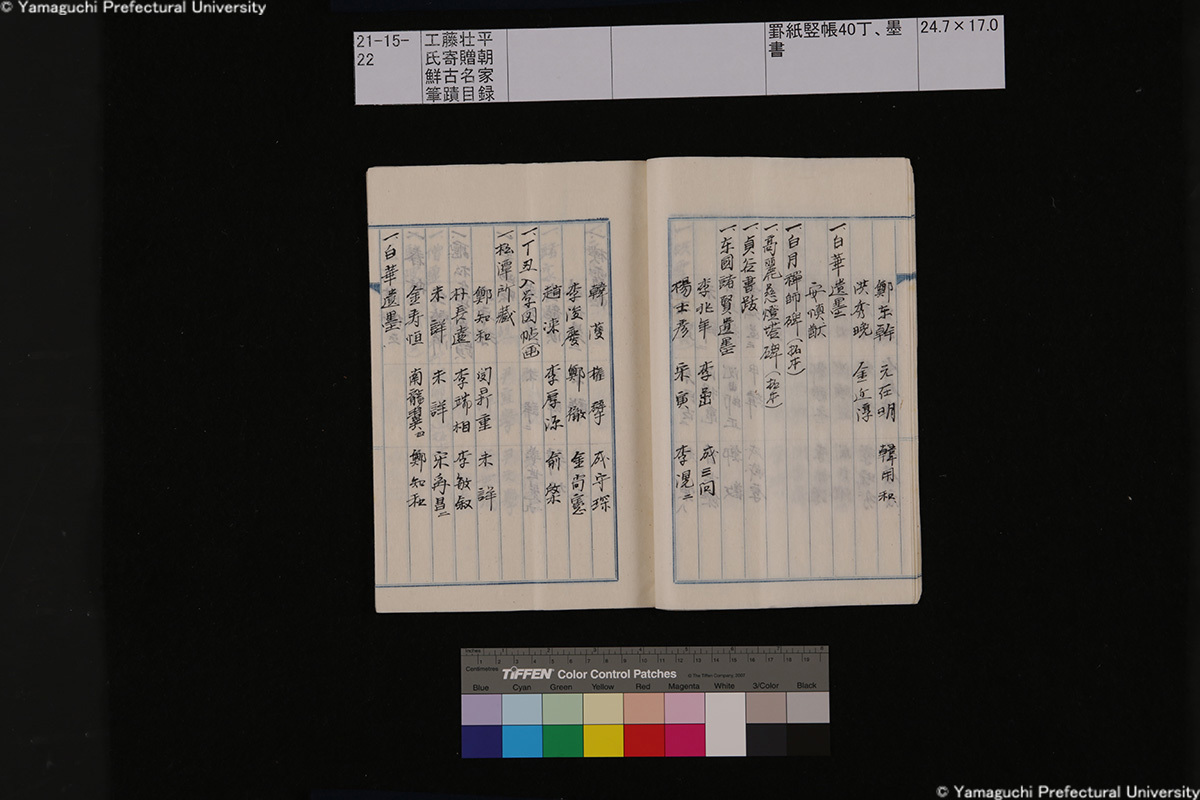 © Yamaguchi Prefectural University
21-15-22
工藤壮平
氏寄贈朝
鮮古名家
筆蹟目録
罫紙竪帳40丁、墨
書
24.7×17.0
鄭东幹 元在明 韓用和
洪秀晩 金近淳
一、白華遺墨
安頊猷
一、白月禅師碑(拓本)
一、高麗慈燈塔碑(拓本)
一、貞谷書跋
一、东国諸賢遺墨
李兆年 李嵒 成三问
楊士彦 宋寅 李滉二
韓濩 權擘 成守琛
李浚慶 鄭澈 金尚憲
趙涑 李厚源 俞棨
一、丁丑入学図帖(画)
一、松潭所蔵
鄭知和 閔昇重 未詳
朴長遠 李端相 李敏叙
未詳 未詳 宋再昌二
金寿恒 南龍翼四 鄭知和
一、白華遺墨
Centimetres
TIFFEN Color Control Patches
© The Tiffen Company, 2007
Blue Cyan Green Yellow Red Magenta White 3/Color Black
© Yamaguchi Prefectural University